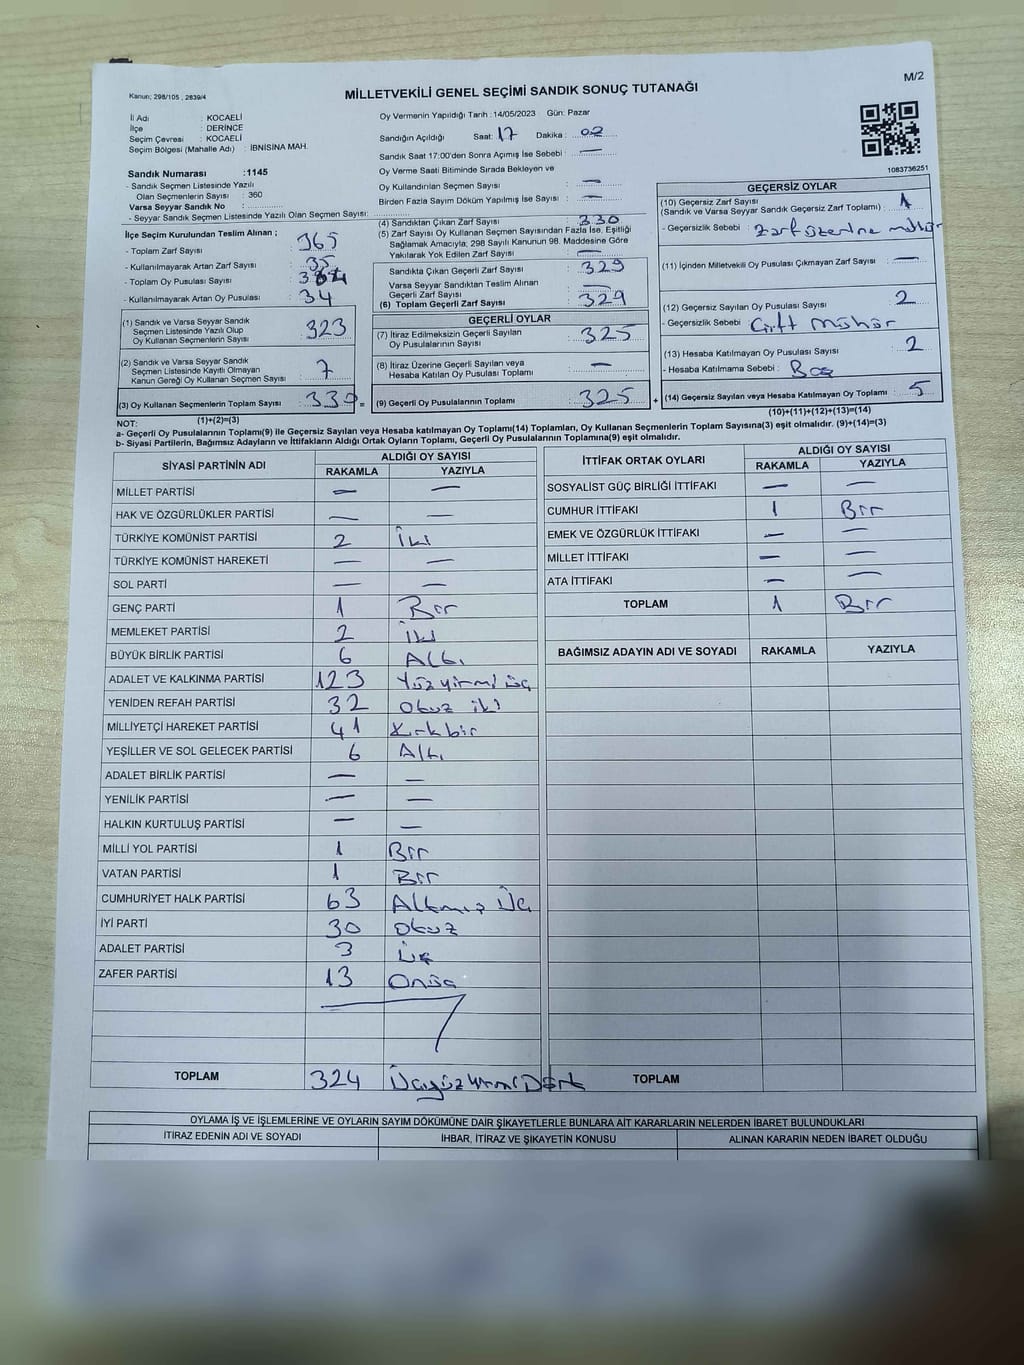 Kanun; 298/105 , 2839/4
MİLLETVEKİLİ GENEL SEÇİMİ SANDIK SONUÇ TUTANAĞI
M/2
İl Adı : KOCAELİ
İlçe : DERİNCE
Seçim Çevresi : KOCAELİ
Seçim Bölgesi (Mahalle Adı) : İBNİSİNA MAH.
Oy Vermenin Yapıldığı Tarih : 14/05/2023 Gün: Pazar
Sandığın Açıldığı Saat: 17 Dakika : 02
Sandık Saat 17:00'den Sonra Açımış İse Sebebi : —
Oy Verme Saati Bitiminde Sırada Bekleyen ve
Oy Kullandırılan Seçmen Sayısı : —
Birden Fazla Sayım Döküm Yapılmış İse Sayısı : —
1083736251
Sandık Numarası :1145
- Sandık Seçmen Listesinde Yazılı
Olan Seçmenlerin Sayısı : 360
Varsa Seyyar Sandık No :
- Seyyar Sandık Seçmen Listesinde Yazılı Olan Seçmen Sayısı:
İlçe Seçim Kurulundan Teslim Alınan ;
- Toplam Zarf Sayısı : 365
- Kullanılmayarak Artan Zarf Sayısı : 35
- Toplam Oy Pusulası :
- Kullanılmayarak Artan Oy Pusulası : 34
(1) Sandık ve Varsa Seyyar Sandık
Seçmen Listesinde Yazılı Olup
Oy Kullanan Seçmenlerin Sayısı : 323
(2) Sandık ve Varsa Seyyar Sandık
Seçmen Listesinde Kayıtlı Olmayan
Kanun Gereği Oy Kullanan Seçmen Sayısı : 7
(3) Oy Kullanan Seçmenlerin Toplam Sayısı : 330 =
(1)+(2)=(3)
(4) Sandıktan Çıkan Zarf Sayısı : 330
(5) Zarf Sayısı Oy Kullanan Seçmen Sayısından Fazla İse, Eşitliği
Sağlamak Amacıyla, 298 Sayılı Kanunun 98. Maddesine Göre
Yakılarak Yok Edilen Zarf Sayısı : —
Sandıkta Çıkan Geçerli Zarf Sayısı : 329
Varsa Seyyar Sandıktan Teslim Alınan
Geçerli Zarf Sayısı : —
(6) Toplam Geçerli Zarf Sayısı : 329
GEÇERLİ OYLAR
(7) İtiraz Edilmeksizin Geçerli Sayılan
Oy Pusulalarının Sayısı : 325
(8) İtiraz Üzerine Geçerli Sayılan veya
Hesaba Katılan Oy Pusulası Toplamı : —
(9) Geçerli Oy Pusulalarının Toplamı : 325 +
GEÇERSİZ OYLAR
(10) Geçersiz Zarf Sayısı
(Sandık ve Varsa Seyyar Sandık Geçersiz Zarf Toplamı) : 1
- Geçersizlik Sebebi : Zarf üzerine mühür
(11) İçinden Milletvekili Oy Pusulası Çıkmayan Zarf Sayısı : —
(12) Geçersiz Sayılan Oy Pusulası Sayısı : 2
- Geçersizlik Sebebi : Çift Mühür
(13) Hesaba Katılmayan Oy Pusulası Sayısı : 2
- Hesaba Katılmama Sebebi : Boş
(14) Geçersiz Sayılan veya Hesaba Katılmayan Oy Toplamı : 5
(10)+(11)+(12)+(13)=(14)
NOT:
a- Geçerli Oy Pusulalarının Toplamı(9) ile Geçersiz Sayılan veya Hesaba katılmayan Oy Toplamı(14) Toplamları, Oy Kullanan Seçmenlerin Toplam Sayısına(3) eşit olmalıdır. (9)+(14)=(3)
b- Siyasi Partilerin, Bağımsız Adayların ve İttifakların Aldığı Ortak Oyların Toplamı, Geçerli Oy Pusulalarının Toplamına(9) eşit olmalıdır.
SİYASİ PARTİNİN ADI ALDIĞI OY SAYISI
RAKAMLA YAZIYLA
MİLLET PARTİSİ — —
HAK VE ÖZGÜRLÜKLER PARTİSİ — —
TÜRKİYE KOMÜNİST PARTİSİ 2 İki
TÜRKİYE KOMÜNİST HAREKETİ — —
SOL PARTİ — —
GENÇ PARTİ 1 Bir
MEMLEKET PARTİSİ 2 İki
BÜYÜK BİRLİK PARTİSİ 6 Altı
ADALET VE KALKINMA PARTİSİ 123 Yüzyirmi üç
YENİDEN REFAH PARTİSİ 32 Otuz iki
MİLLİYETÇİ HAREKET PARTİSİ 41 Kırkbir
YEŞİLLER VE SOL GELECEK PARTİSİ 6 Altı
ADALET BİRLİK PARTİSİ — —
YENİLİK PARTİSİ — —
HALKIN KURTULUŞ PARTİSİ — —
MİLLİ YOL PARTİSİ 1 Bir
VATAN PARTİSİ 1 Bir
CUMHURİYET HALK PARTİSİ 63 Altmış Üç
İYİ PARTİ 30 Otuz
ADALET PARTİSİ 3 üç
ZAFER PARTİSİ 13 Onüç
TOPLAM 324 ÜçyüzyirmiDört
İTTİFAK ORTAK OYLARI ALDIĞI OY SAYISI
RAKAMLA YAZIYLA
SOSYALİST GÜÇ BİRLİĞİ İTTİFAKI — —
CUMHUR İTTİFAKI 1 Bir
EMEK VE ÖZGÜRLÜK İTTİFAKI — —
MİLLET İTTİFAKI — —
ATA İTTİFAKI — —
TOPLAM 1 Bir
BAĞIMSIZ ADAYIN ADI VE SOYADI RAKAMLA YAZIYLA
TOPLAM
OYLAMA İŞ VE İŞLEMLERİNE VE OYLARIN SAYIM DÖKÜMÜNE DAİR ŞİKAYETLERLE BUNLARA AİT KARARLARIN NELERDEN İBARET BULUNDUKLARI
İTİRAZ EDENİN ADI VE SOYADI İHBAR, İTİRAZ VE ŞİKAYETİN KONUSU ALINAN KARARIN NEDEN İBARET OLDUĞU